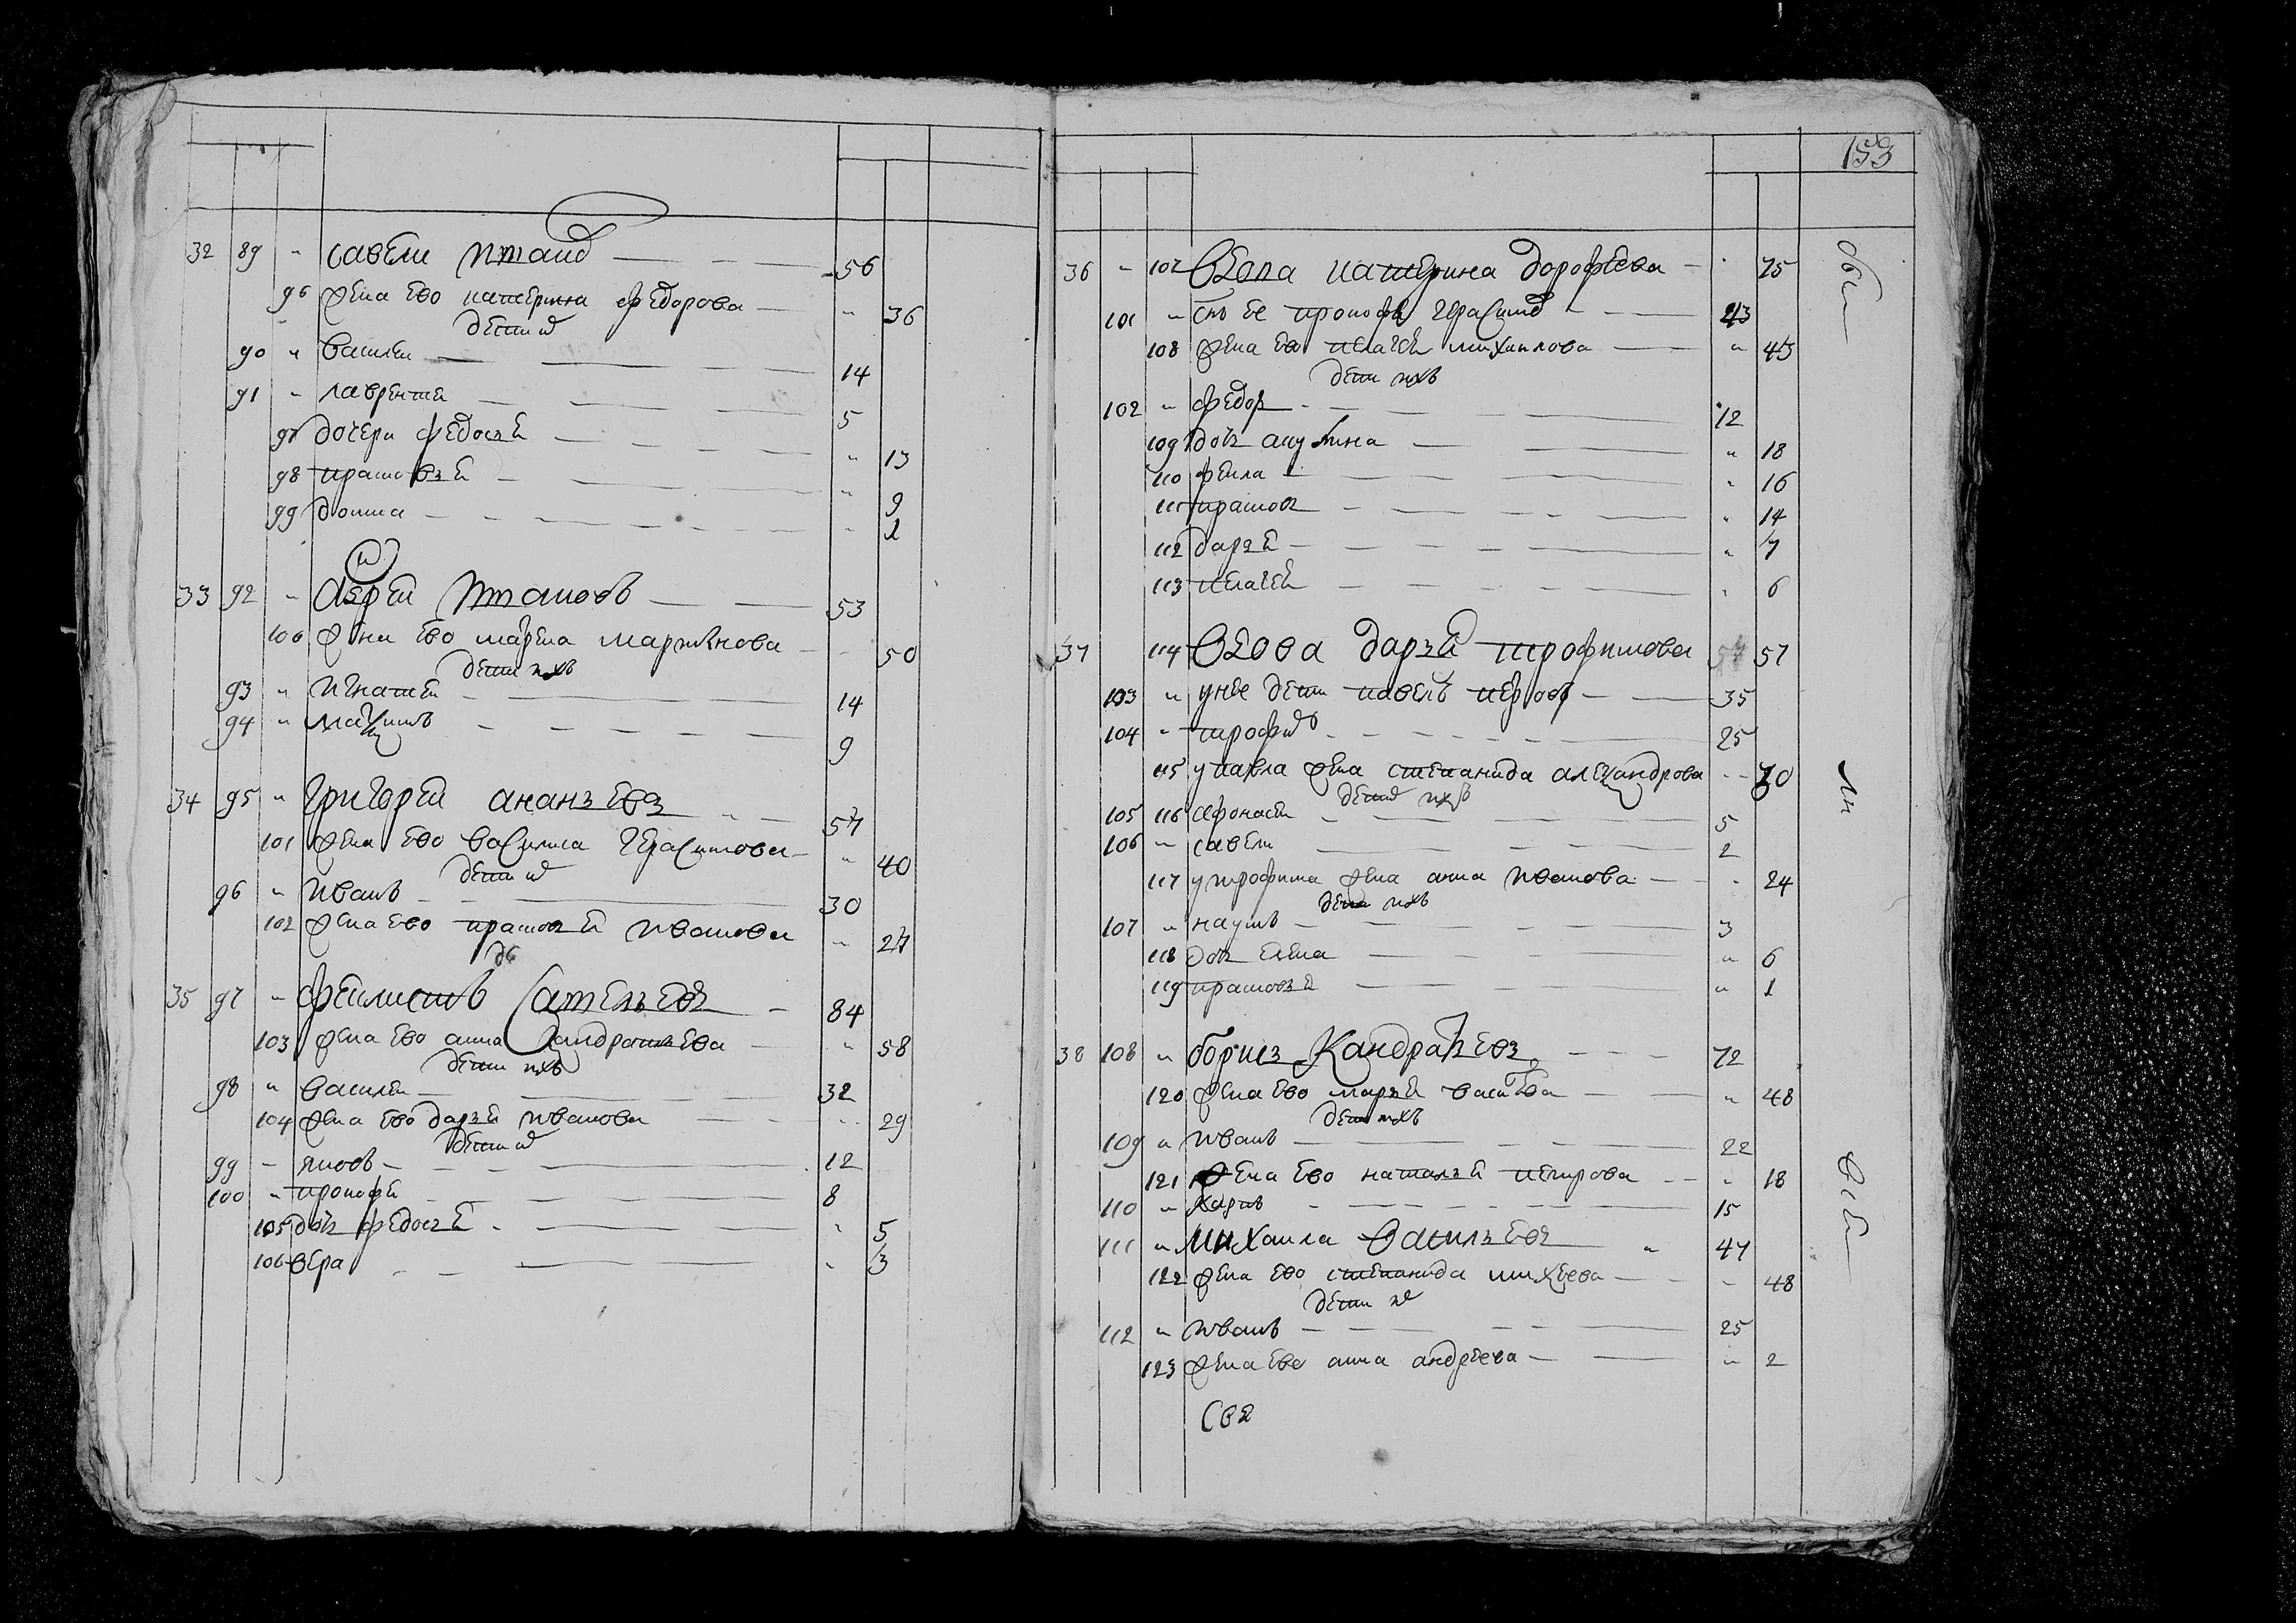 32 89 " савели птанов — 56
96 жена ево катерина федорова — " 36
дети их
90 " василей — 14
91 " лаврентей — 5
97 дочери федосья — " 13
98 прасковья — " 9
99 домна — " 2
33 92 " андрей птанов — 53
100 жена ево марфа мартянова — " 50
дети их
93 " игнатей — 14
94 " максимъ — 9
34 95 " григорей ананьевъ — 57
101 жена ево василиса герасимова — " 40
дети их
96 " иванъ — 30
102 жена ево прасковья иванова — " 27
35 97 " филистъ савельевъ — 84
103 жена ево анна кандратьева — " 58
дети ихъ
98 " василей — 32
104 жена ево дарья иванова — " 29
дети их
99 " яковъ — 12
100 " прокофей — 8
105 дочь федосья — " 5
106 вера — " 3
153
36 " 107 вдова катерина дорофеева — " 75
101 " снъ ее прокофей герасимов — 43
108 жена ево пелагея михаилова — " 43
дети ихъ
102 " федор — 12
109 дочь акулина — " 18
110 фекла — " 16
111 прасковья — " 14
112 дарья — " 7
113 пелагея — " 6
37 114 вдова дарья трофимова 57
103 " у нее дети павелъ петровъ — 35
104 " трофимъ — 25
115 у павла жена степанида александрова — " 30
дети ихъ
105 116 афонасей — 5
106 " савели — 2
117 у трофима жена анна иванова — " 24
дети ихъ
107 " наумъ — 3
118 дочь елена — " 6
119 прасковья — " 1
38 108 " борисъ кандратьевъ — 72
120 жена ево марья васильева — " 48
дети ихъ
109 " иванъ — 22
121 жена ево наталья петрова — " 18
110 " карпъ — 15
111 " михаила васильевъ " 47
122 жена ево степанида михеева — " 48
дети их
112 " иванъ — 25
123 жена ево анна андреева — " 2